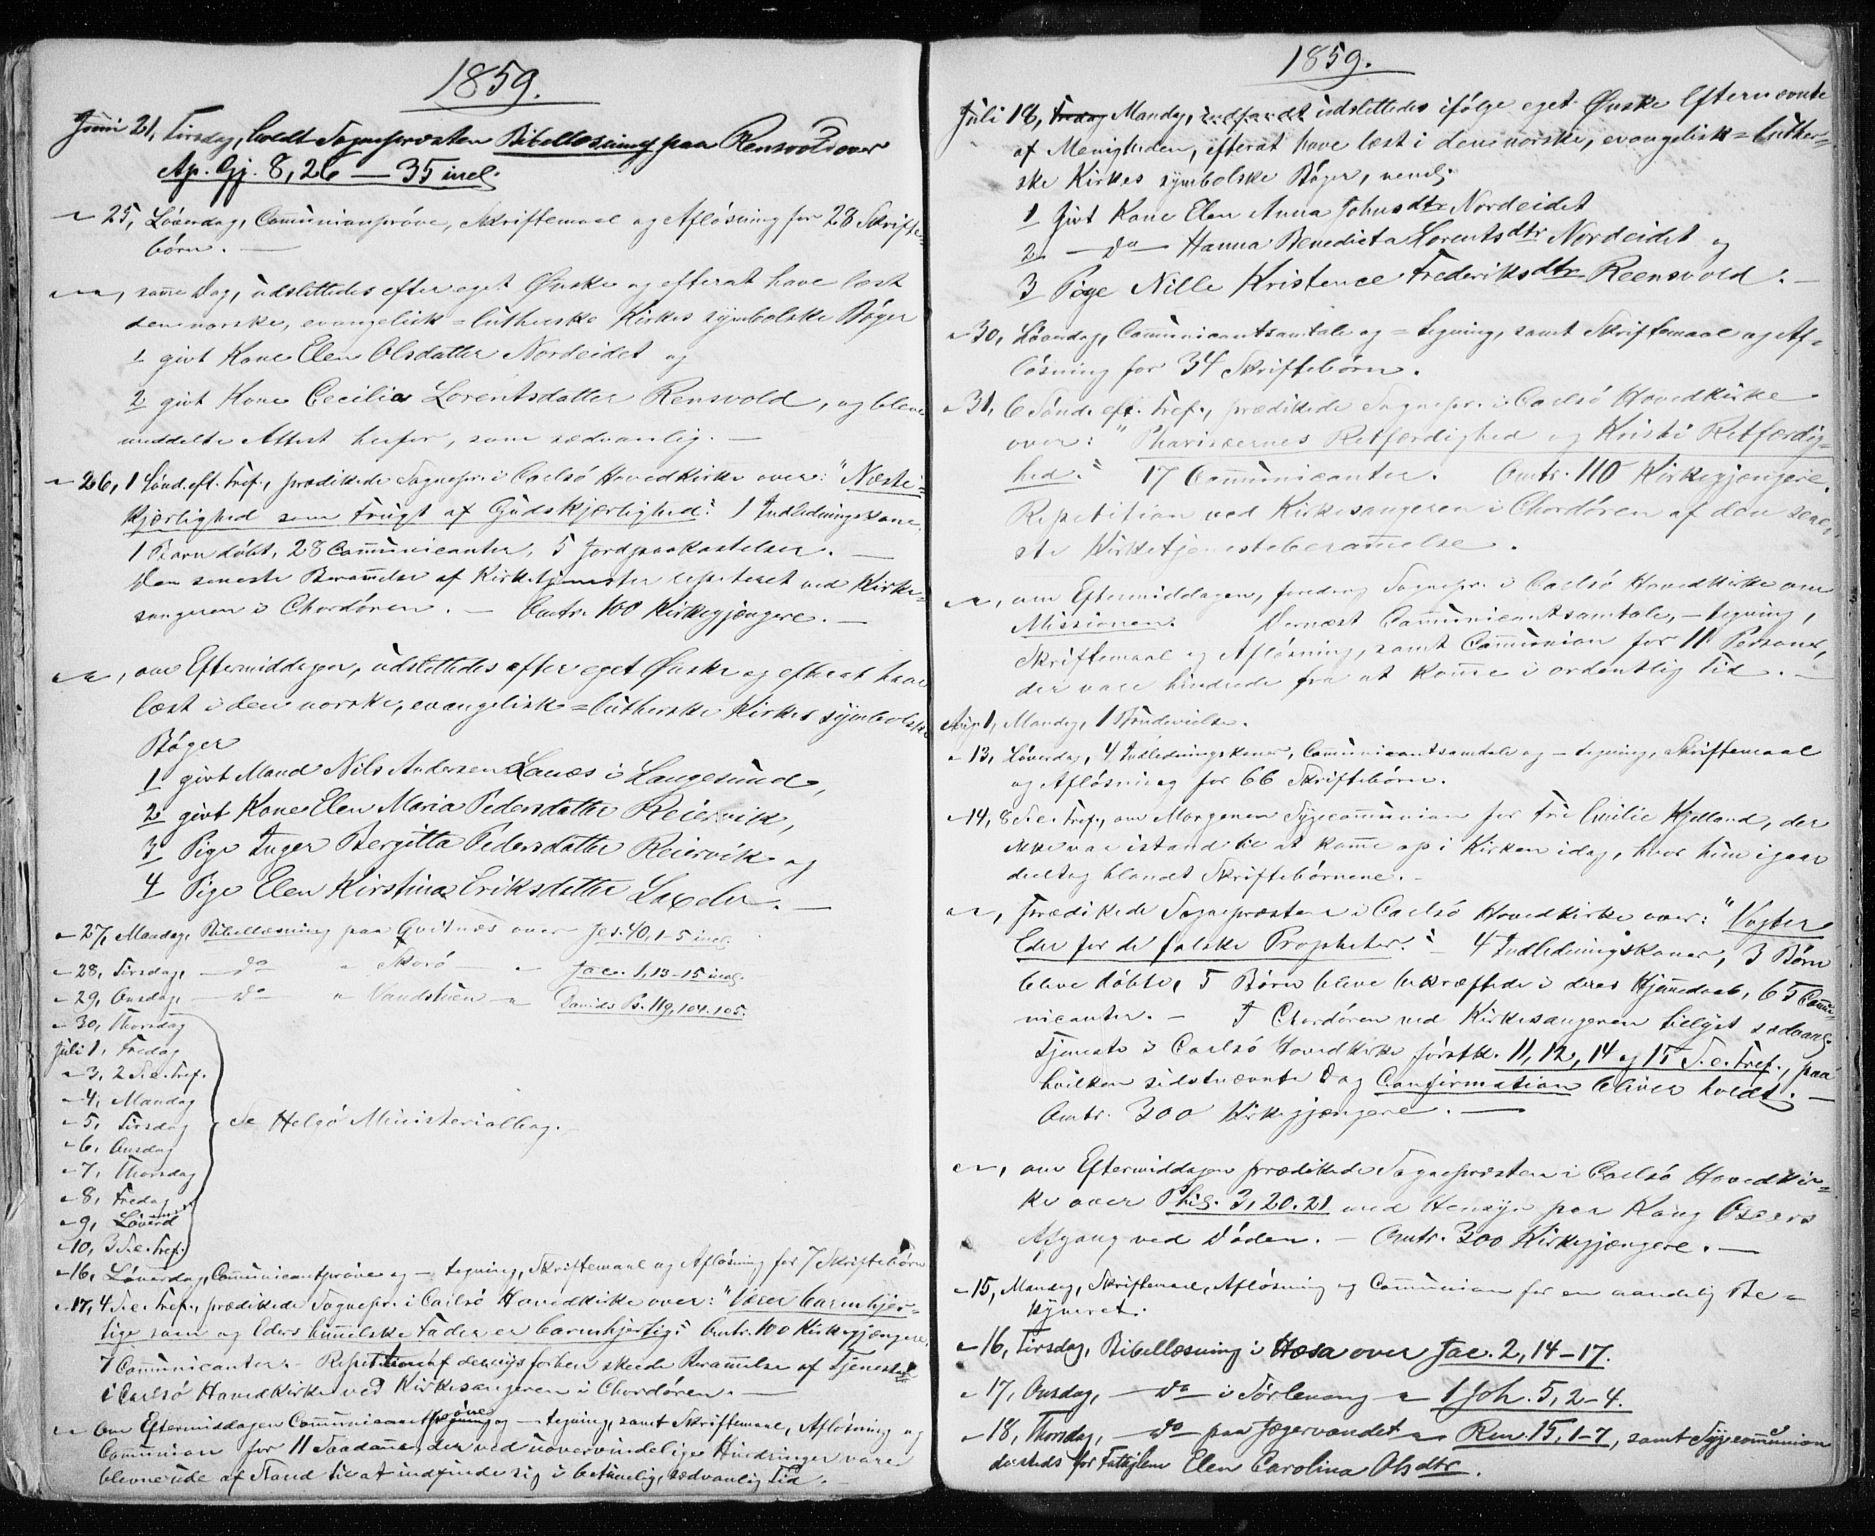 1859.
Juni 21, Tirsdag, holdt Sognepræsten Bibellæsning paa Rensvold over
Ap. Gj. 8, 26 — 35 incl.
" 25, Löverdag, Communionpröve, Skriftemaal og Aflösning for 28 Skrifte-
börn. —
" ", samme Dag, udslettedes efter eget Ønske og efterat have læst
den norske, evangelisk=lutherske Kirkes symbolske Böger
1 givt Kone Elen Olsdatter Nordeidet og
2 givt Kone Cecilia Lorentsdatter Rensvold, og bleve
meddelte Attest herfor, som sædvanlig. —
" 26, 1 Sönd. eft. Tref., prædikede Sognepr. i Carlsö Hovedkirke over: "Næste-
kjærlighed som Frugt af Gudskjærlighed." 1 Indledningskone.
1 Barn döbt, 28 Communicanter, 5 Jordpaakastelser. —
Den seneste Berammelse af Kirketjenester repeteret ved Kirke-
sangeren i Chordören. — Omtr. 100 Kirkegjængere. —
" ", om Eftermiddagen, udslettedes efter eget Ønske og efterat have
læst i den norske, evangelisk=lutherske Kirkes symbolske
Böger
1 givt Mand Nils Andersen Lanæs i Langesund,
2 givt Kone Elen Maria Pedersdatter Reiervik,
3 Pige Inger Bergitta Pedersdatter Reiervik og
4 Pige Elen Kirstina Eriksdatter Laxelv. —
" 27, Mandag, Bibellæsning paa Gvitnæs over Jes. 40, 1-5 incl.
" 28, Tirsdag, — do " Skorö — " Jac. 1, 13-15 incl.
" 29, Onsdag, — do " Vandstuen — " Davids Ps. 119, 104. 105.
" 30, Thorsdag
Juli 1, Fredag
" 3, 2 S. e. Tref.
" 4, Mandag
" 5, Tirsdag
" 6, Onsdag
" 7, Thorsdag
" 8, Fredag
" 9, Löverd
" 10, 3 S. e. Tref.
Se Helgö Ministerialbog. —
" 16, Löverdag, Communicantpröve og — tegning, Skriftemaal og Aflösning for 7 Skriftebörn
" 17, 4 S. e. Tref., prædikede Sognepr. i Carlsö Hovedkirke over: "Værer barmhjer-
tige som og Eders himmelske Fader er barmhjertig." Omtr. 100 Kirkegjængere,
7 Communicanter. — Repetition af den nys forhen skede Berammelse af Tjenester
i Carlsö Hovedkirke ved Kirkesangeren i Chordören. —
" " om Eftermiddagen Communicantpröve og — tegning, samt Skriftemaal, Aflösning og
Communion for 11 Saadanne, der ved uovervindelige Hindringer vare
blevne ude af Stand til at indfinde sig i betimelig, sædvanlig Tid. —
1859.
Juli 18, Fredag Mandag, indfandt udslettedes ifölge eget Ønske Efternævnte
af Menigheden, efterat have læst i den norske, evangelisk=luther-
ske Kirkes symbolske Böger, nemlig
1 Givt Kone Elen Anna Johnsdtr Nordeidet
2 — do — Hanna Benedicta Lorentsdtr Nordeidet og
3 Pige Nille Kristence Frederiksdtr Reensvold. —
" 30, Löverdag, Communicantsamtale og — tegning, samt Skriftemaal og Af-
lösning for 34 Skriftebörn.
" 31, 6 Sönd. eft. Tref., prædikede Sognepr. i Carlsö Hovedkirke
over: "Pharisæernes Retfærdighed og Kristi Retfærdig-
hed." 17 Communicanter. Omtr. 110 Kirkegjængere.
Repetition ved Kirkesangeren i Chordören af den sene-
ste Kirketjenesteberammelse.
" ", om Eftermiddagen, foredrog Sognepr. i Carlsö Hovedkirke om
Missionen. Dernæst Communicantsamtale, — tegning,
Skriftemaal og Aflösning, samt Communion for 11 Personer,
der vare hindrede fra at komme i ordentlig Tid. —
Aug. 1, Mandag, 1 Brudevielse.
" 13, Löverdag, 4 Indledningskoner, Communicantsamtale og — tegning, Skriftemaal
og Aflösning for 66 Skriftebörn.
" 14, 8 S. e. Tref., om Morgenen Sygecommunion for Frü Cecilie Kjelland, der
ikke var istand til at komme op i Kirken idag, hvor hun igaar
deeltog blandt Skriftebörnene. —
" ", Prædikede Sognepræsten i Carlsö Hovedkirke over: "Vogter
Eder for de falske Propheter." — 4 Indledningskoner, 3 Börn
bleve döbte, 5 Börn bleve bekræftede i deres Hjemmedaab, 65 Commu-
nicanter. — I Chordören ved Kirkesangeren tillyst sædvanl.
Tjeneste i Carlsö Hovedkirke förstk. 11, 12, 14 og 15 S. e. Tref., paa
hvilken sidstnævnte Dag Confirmation bliver holdt. —
Omtr. 300 Kirkegjængere. —
" ", om Eftermiddagen prædikede Sognepræsten i Carlsö Hovedkir-
ke over Phil. 3, 20. 21 med Hensyn paa Kong Oscars
Afgang ved Döden. — Omtr. 300 Kirkegjængere. —
" 15, Mandag, Skriftemaal, Aflösning og Communion for en aandelig Be-
kymret.
" 16, Tirsdag, Bibellæsning i Hæsa over Jac. 2, 14-17.
" 17, Onsdag, — do — i Sörlenang — " 1 Joh. 5, 2-4.
" 18, Thorsdag, — do — paa Jægervandet " Rom. 15, 1-7, samt Sygecommunion
dersteds for Fattiglem Elen Carolina Olsdtr.